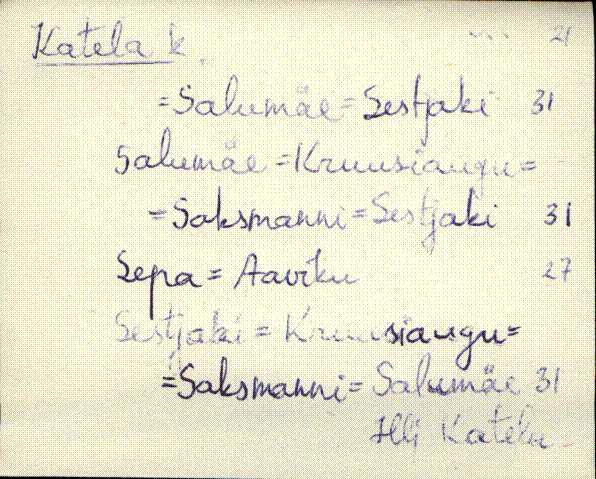 Katela k. 21
=Salumäe=Sestjaki 31
Salumäe=Kruusiaugu=
=Saksmanni=Sestjaki 31
Sepa=Aaviku 27
Sestjaki=Kruusiaugu=
=Saksmanni=Salumäe 31
Illi Katela